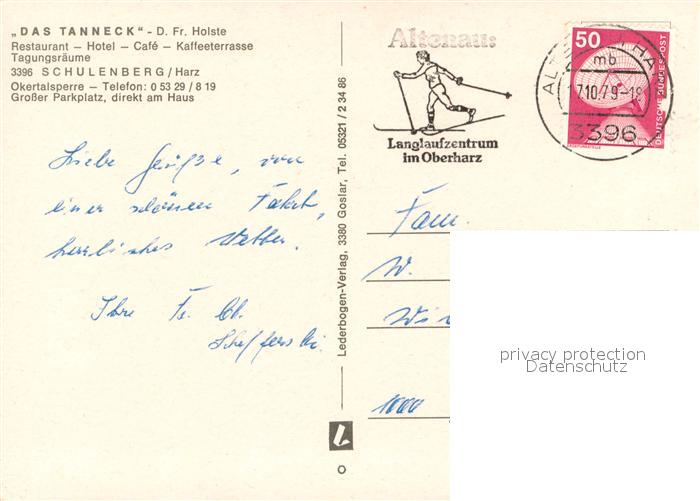 „DAS TANNECK“ - D. Fr. Holste
Restaurant – Hotel – Café – Kaffeeterrasse
Tagungsräume
3396 SCHULENBERG/Harz
Okertalsperre – Telefon: 0 53 29 / 8 19
Großer Parkplatz, direkt am Haus
Liebe Grüße, von
einer schönen Fahrt,
herrliches Wetter.
Ihre Fr. Ch.
Lederbogen-Verlag, 3380 Goslar, Tel. 05321 / 2 34 86
Altenau:
Langlaufzentrum
im Oberharz
mb
17.10.79-18
3396
50
DEUTSCHE BUNDESPOST
Fam.
W.
1000
privacy protection
Datenschutz